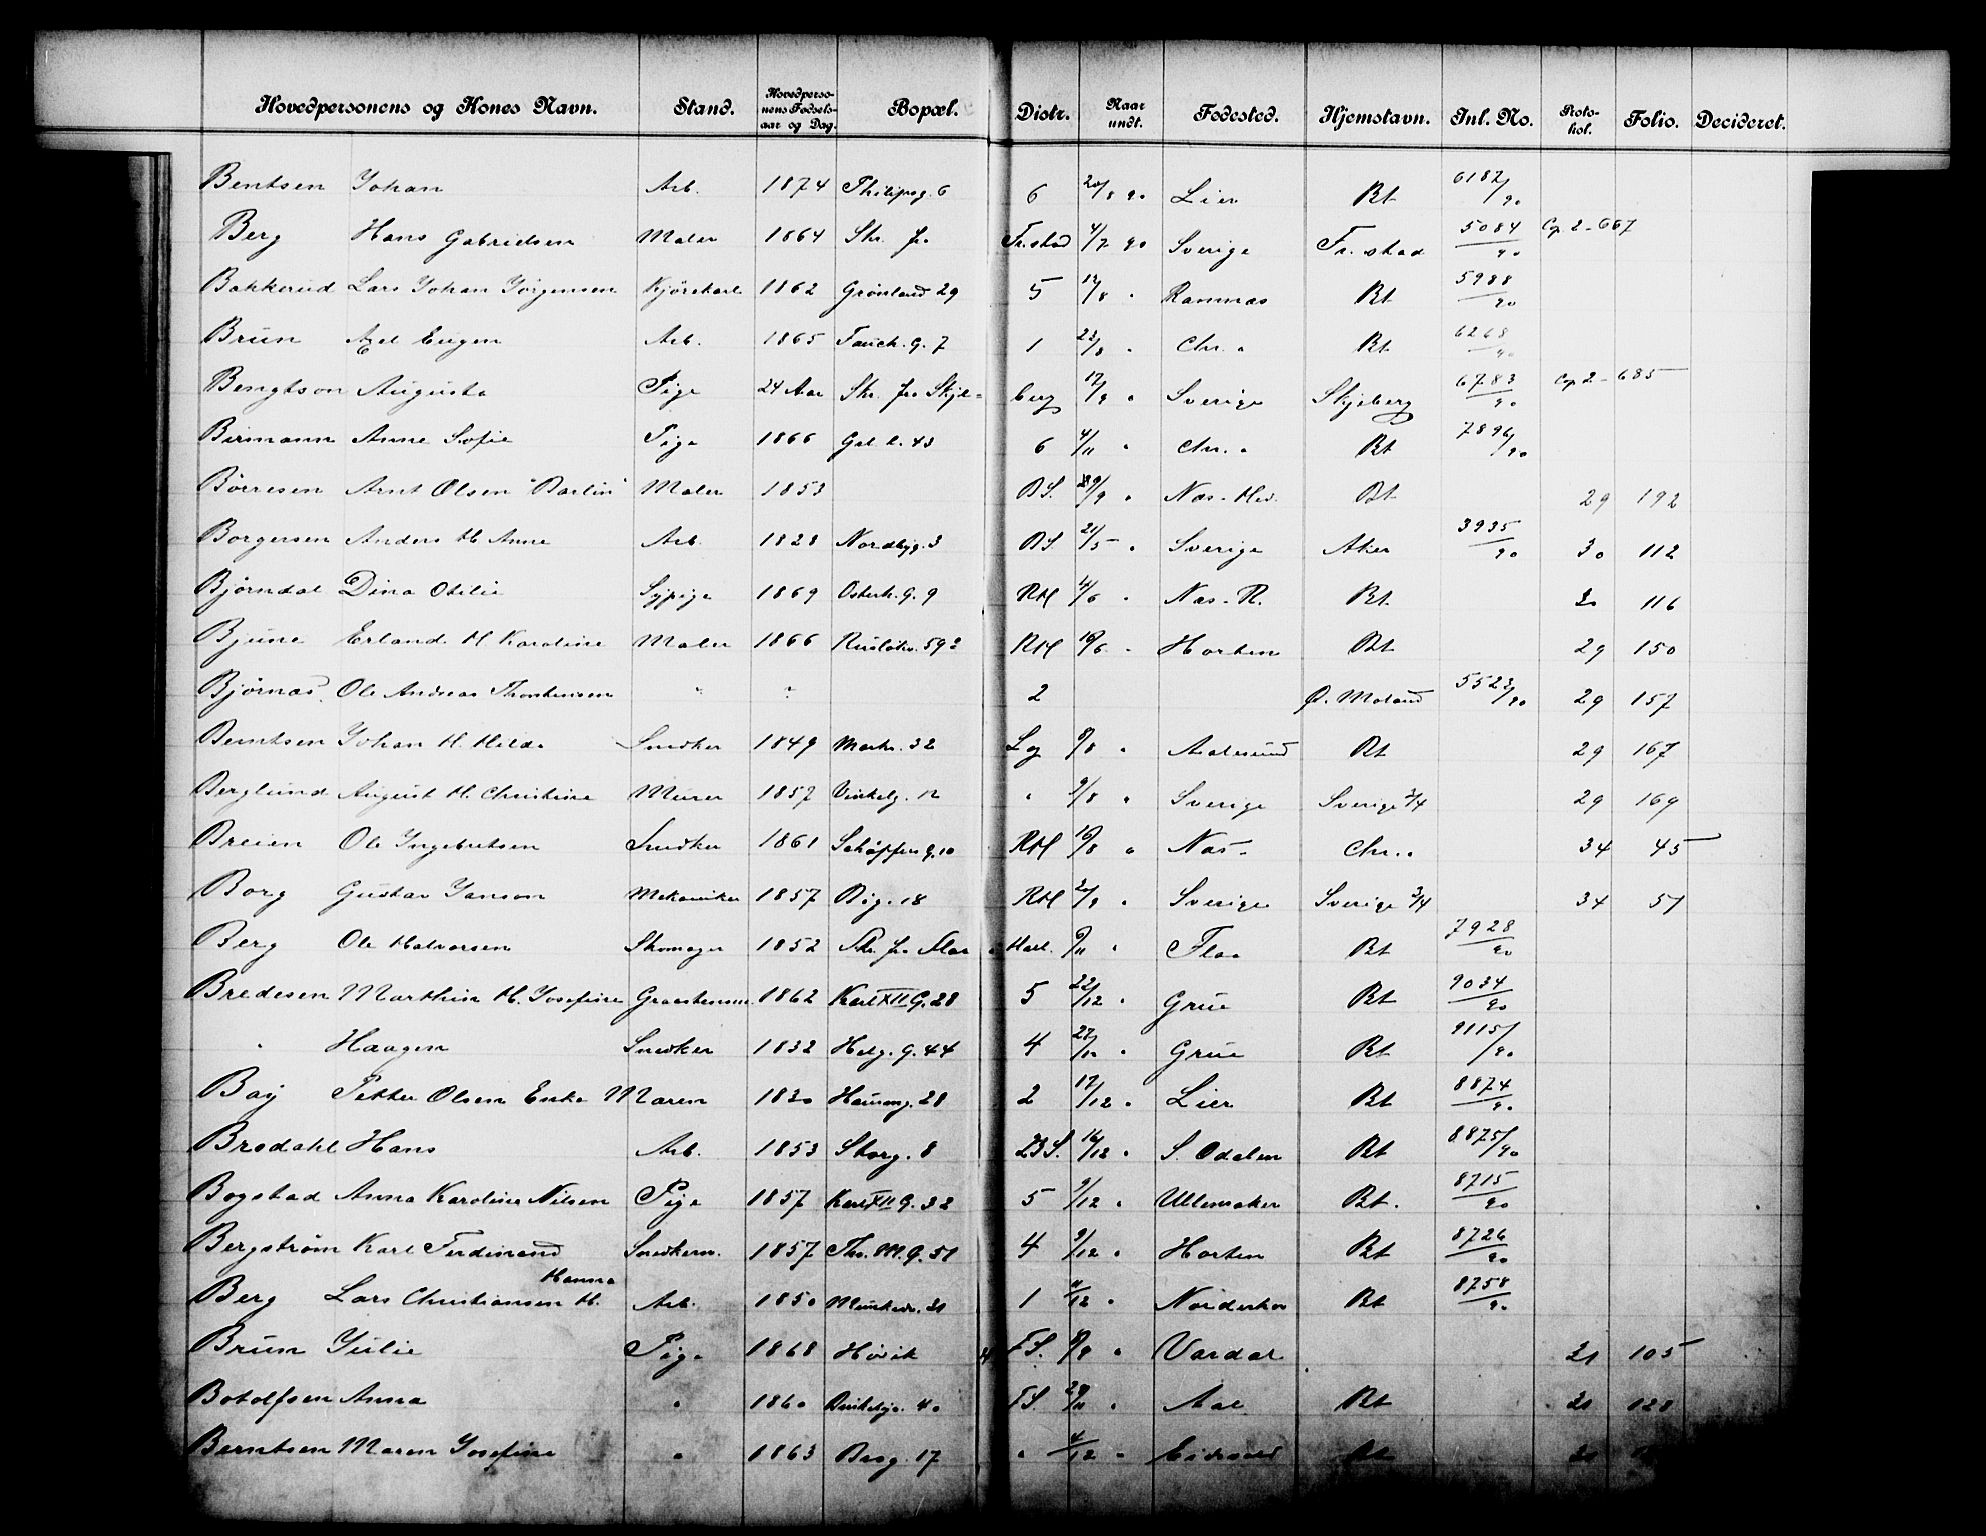 Hovedpersonens og Kones Navn. Stand. Hovedperso-nens Fødsels-aar og Dag. Bopæl. Distr. Naar undt. Fødested. Hjemstavn. Inl. No. Proto-kol. Folio. Decideret.
Bentsen Johan Arb. 1874 Philipsg. 6 6 20/8 90 Lier Bt 6182/90
Berg Hans Gabrielsen Maler 1864 Str. fra Fr.stad 4/7 90 Sverige Fr. stad 5084/90 Cop. 2 - 667
Bakkerud Lars Johan Jørgensen Kjørekarl 1862 Grønland 29 5 12/8 " Ramnæs Bt 5988/90
Brun Axel Eugen Arb. 1865 Fauch. G. 7 1 22/8 " Chr. a Bt 6268/90
Bengtson Augusta Pige 24 Aar Str. fra Skje- berg 17/9 " Sverige Skjeberg 6783/90 Cop 2 - 685
Birmann Anne Sofie Pige 1866 Gal. l. 43 6 4/11 " Chr. a Bt 7896/90
Børresen Arnt Olsen "Barlin" Maler 1853 BS. 29/9 " Næs - Hed. Bt 29 192
Borgersen Anders H Anne Arb. 1828 Nordbyg. 3 BS. 21/5 " Sverige Aker 3935/90 30 112
Bjørndal Dina Otilie Sypige 1869 Osterh. G. 9 RH 4/6 " Næs - R. Bt 30 116
Bjune Erland H Karoline Maler 1866 59 RH 10/6 " Horten Bt 29 150
Bjørnæs Ole Andreas Thorstensen " " 2 Ø. Moland 5522/90 29 157
Berntsen Johan H. Hilda Snedker 1849 Markv. 32 Lg 8/8 " Aalesund Bt 29 167
Berglund August H. Christine Murer 1857 Vinkelg. 12 " 9/8 " Sverige Sverige 3/4 29 169
Breien Ole Ingebretsen Snedker 1861 Schøffers G. 10 RH 16/8 " Næs - Chr. a 34 45
Borg Gustav Janson Mekaniker 1857 Big. 18 RH 2/9 " Sverige Sverige 3/4 34 51
Berg Ole Halvorsen Skomager 1852 Str. fra Flaa Harl. 6/11 " Flaa Bt 7928/90
Bredesen Marthin H. Josefine 1862 Karl XII G. 28 5 22/12 " Grue Bt 9034/90
" Haagen Snedker 1832 Helg. G. 44 4 27/12 " Grue Bt 9115/90
Bay Petter Olsen Enke Maren 1830 Hausmg. 28 2 17/12 " Lier Bt 8874/90
Brodahl Hans Arb. 1853 Storg. 8 BS. 16/12 " S. Odalen Bt 8875/90
Bogstad Anna Karoline Nilsen Pige 1857 Karl XII G. 32 5 9/12 " Ullensaker Bt. 8715/90
Bergstrøm Karl Ferdinand Snedkerm. 1857 Ths. M. G. 51 4 9/12 " Horten Bt 8726/90
Berg Lars Christiansen H. Hanna Arb. 1850 Munkedv. 31 1 11/12 " Norderhov Bt 8758/90
Brun Julie Pige 1868 Høvik FS. 8/9 " Vardal 31 105
Botolfsen Anna " 1860 40 FS. 29/11 " Aal Bt 31 128
Berntsen Maren Josefine " 1863 Berg. 17 " 4/12 " Eidsvold Bt 31